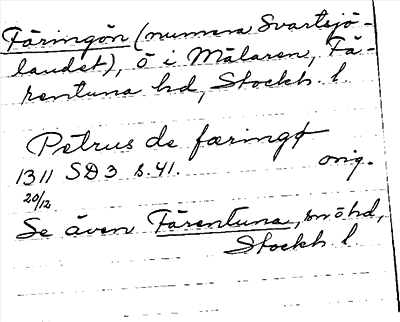 Färingön (numera Svartsjö-
landet), ö i Mälaren, Fä-
rentuna hd, Stockh. l.
Petrus de færingø
1311 SD 3 s. 41. orig.
20/12
Se även Färentuna, sn o hd,
Stockh. l.